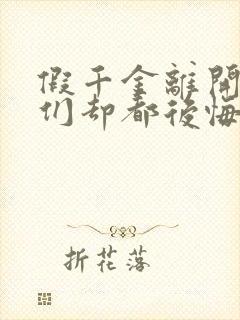 假千金離開
们却都後悔
折花落